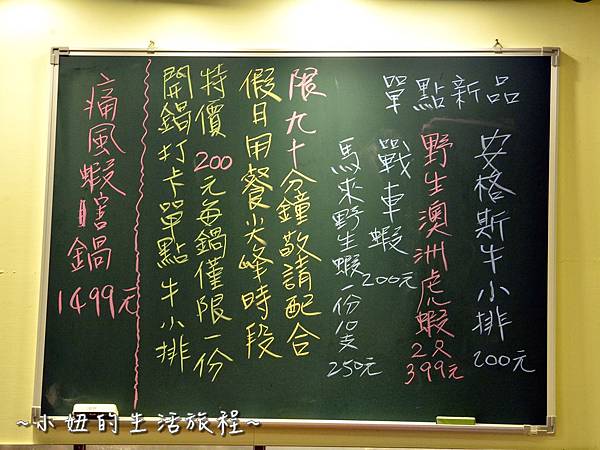 單點新品
安格斯牛小排 200元
野生澳洲虎蝦 2只 399元
戰車蝦 200元
馬來野生蝦一份8隻 250元
限九十分鐘敬請配合
假日用餐尖峰時段
特價200元每鍋僅限一份
開鍋打卡單點牛小排
痛風蝦害鍋 1499元
~小妞的生活旅程~